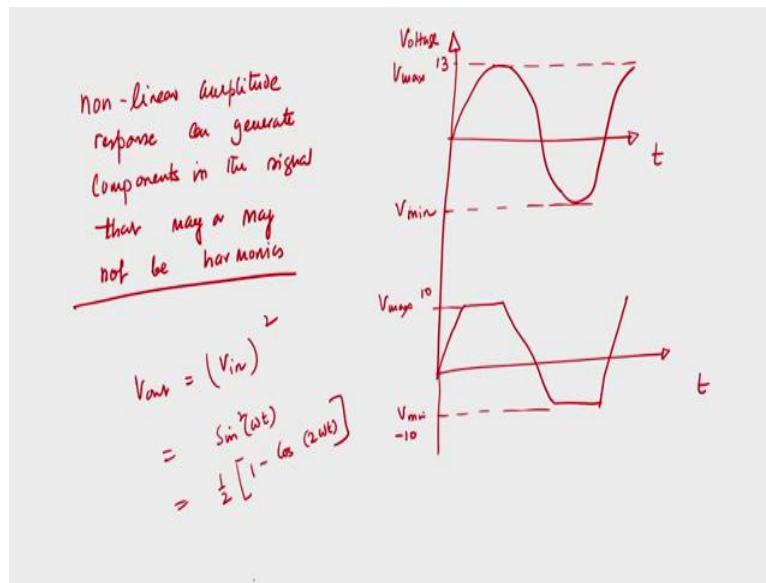 non-linear amplitude
response can generate
Components in the signal
that may or may
not be harmonics
Vout = (Vin)²
= Sin²(ωt)
= 1/2 [1 - Cos (2ωt)]
Voltage
Vmax 13
t
Vmin
Vmax 10
t
Vmin
-10